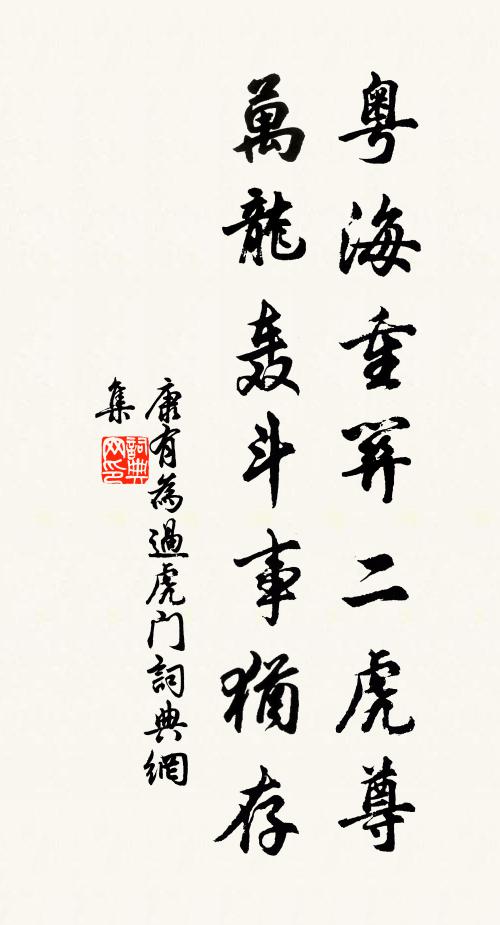 粵海重關二虎尊
萬龍轰斗事猶存
康有為過虎门詞典網
集
詞典
网印